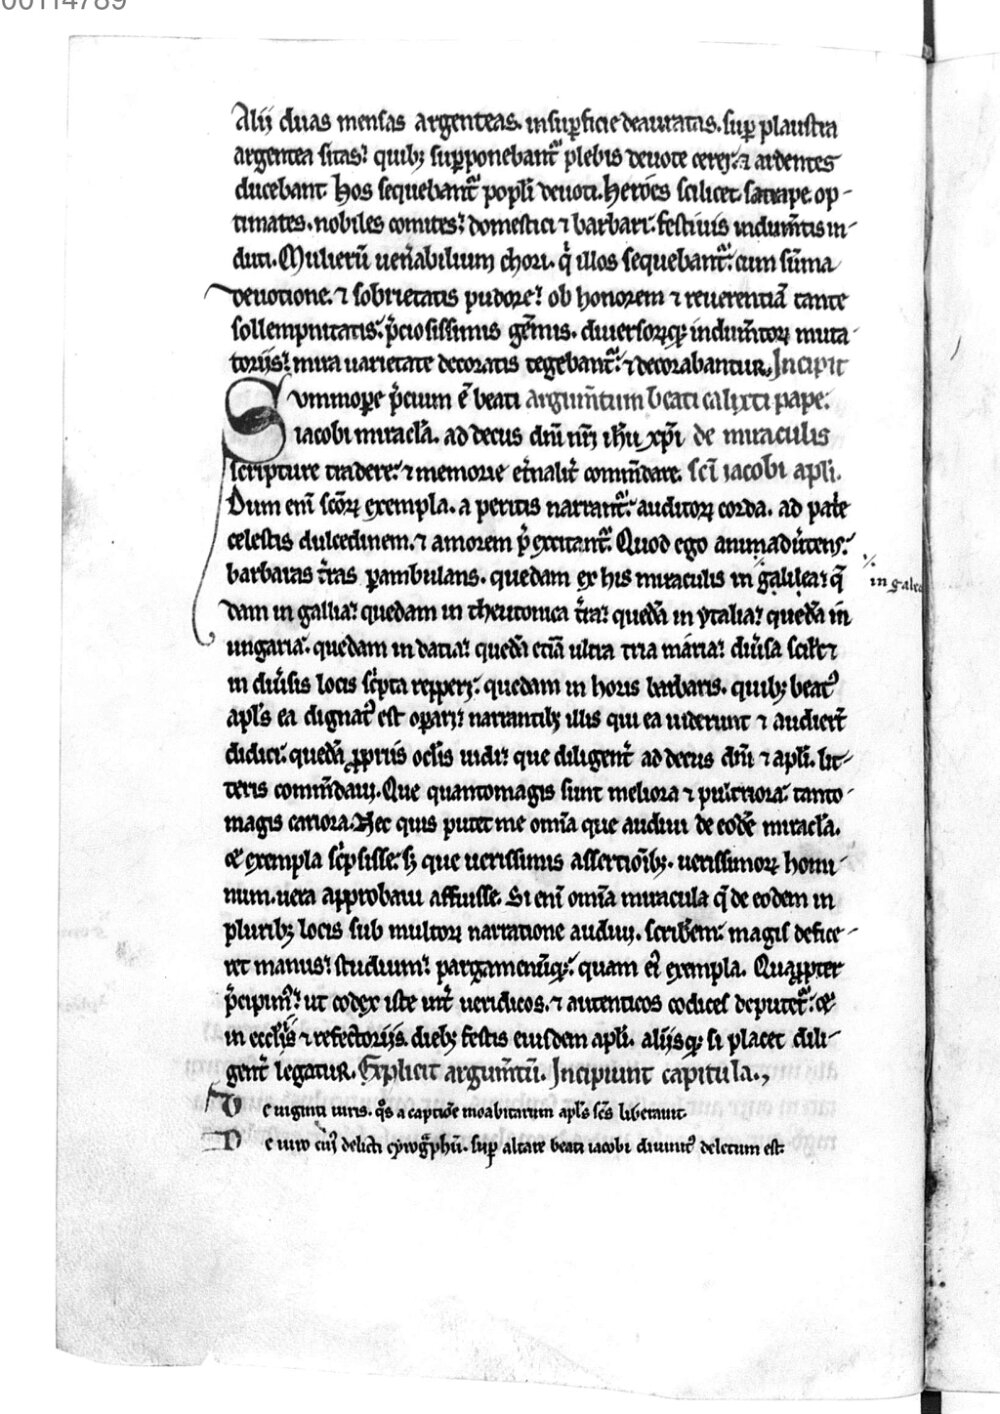 00114789
Alij duas mensas argenteas. insup̲ficie deauratas. sup̲ plaustra
argentea sitas. quibꝫ sup̲ponebant᷑ plebis deuote cerei. ⁊ ardentes
ducebant. Hos sequebant᷑ popl̄i deuoti. Heroēs scilicet. satrape. op-
timates. nobiles comites. domestici ⁊ barbari. festiuis indum̄tis in-
duti. Mulierū uen̄abilium chori. q̄ illos sequebant᷑. cum sūma
deuotione. ⁊ sobrietatis pudore. ob honorem ⁊ reuerentiā tante
sollempnitatis. p̄ciosissimis gēmis. diuersorūqꝫ indum̄torꝝ muta-
torijs. mira uarietate decoratis tegebant᷑. ⁊ decorabantur. Incipit
Summope̲ p̄cium ē beati argum̄tum beati calixti pape.
iacobi miracl̄a. ad decus dn̄i nr̄i ih̄u xp̄i de miraculis
scripture tradere. ⁊ memorie et̄nalit̄ com̄mdare. sc̄i iacobi apl̄i.
Dum eni᷑ sc̄orꝝ exempla. a peritis narrant᷑. auditorꝝ corda. ad pat̄e
celestis dulcedinem. ⁊ amorem p̄ excitant᷑. Quod ego animadut̄ens.
barbaras t̄ras p̲ambulans. quedam ex his miraculis in galilea. q̄
in galea
dam in gallia. quedam in theutonica t̄ra. quedā in ytalia. quedā in
ungaria. quedam in datia. quedā etiā ultra tria maria. diu̾sa scił⁊
in diu̾sis locis sc̄pta repperi. quedam in horis barbaris. quibꝫ beat᷒
apl̄s ea dignat᷒ est op̲ari. narrantibꝫ illis qui ea uiderunt ⁊ audier̄t
didici. quedā ꝓpriis ocl̄is uidi. que diligent̄ ad decus dn̄i ⁊ apl̄i. lit-
teris com̄mdaui. Que quantomagis sunt meliora ⁊ pulcriora. tanto
magis cariora. Nec quis putet me om̄ia que audiui de eodē miracl̄a.
⁊ exempla sc̄psisse. sꝫ que uerissimis assertiōibꝫ. uerissimorꝝ homi-
num. uera approbaui affuisse. Si eni᷑ om̄ia miracula q̄ de eodem in
pluribꝫ locis sub multorꝝ narratione audiui. scribem. magis defice-
ret manus. studium. pargamenūqꝫ. quam ei᷒ exempla. Quaꝓpter
p̄cipim᷒. ut codex iste int̄ ueridicos. ⁊ autenticos codices deputet᷑. ⁊
in eccl̄ijs ⁊ refectorijs. diebꝫ festis eiusdem apl̄i. alijsqꝫ si placet dili-
gent̄ legatur. Explicit argum̄tū. Incipiunt capitula.,
De uiginti uiris. qͦs a captiōe moabitarum apl̄s sc̄s liberauit.
De uiro cui᷒ delicti cyrogᷓphū. sup̲ altare beati iacobi diuinit᷒ deletum est.